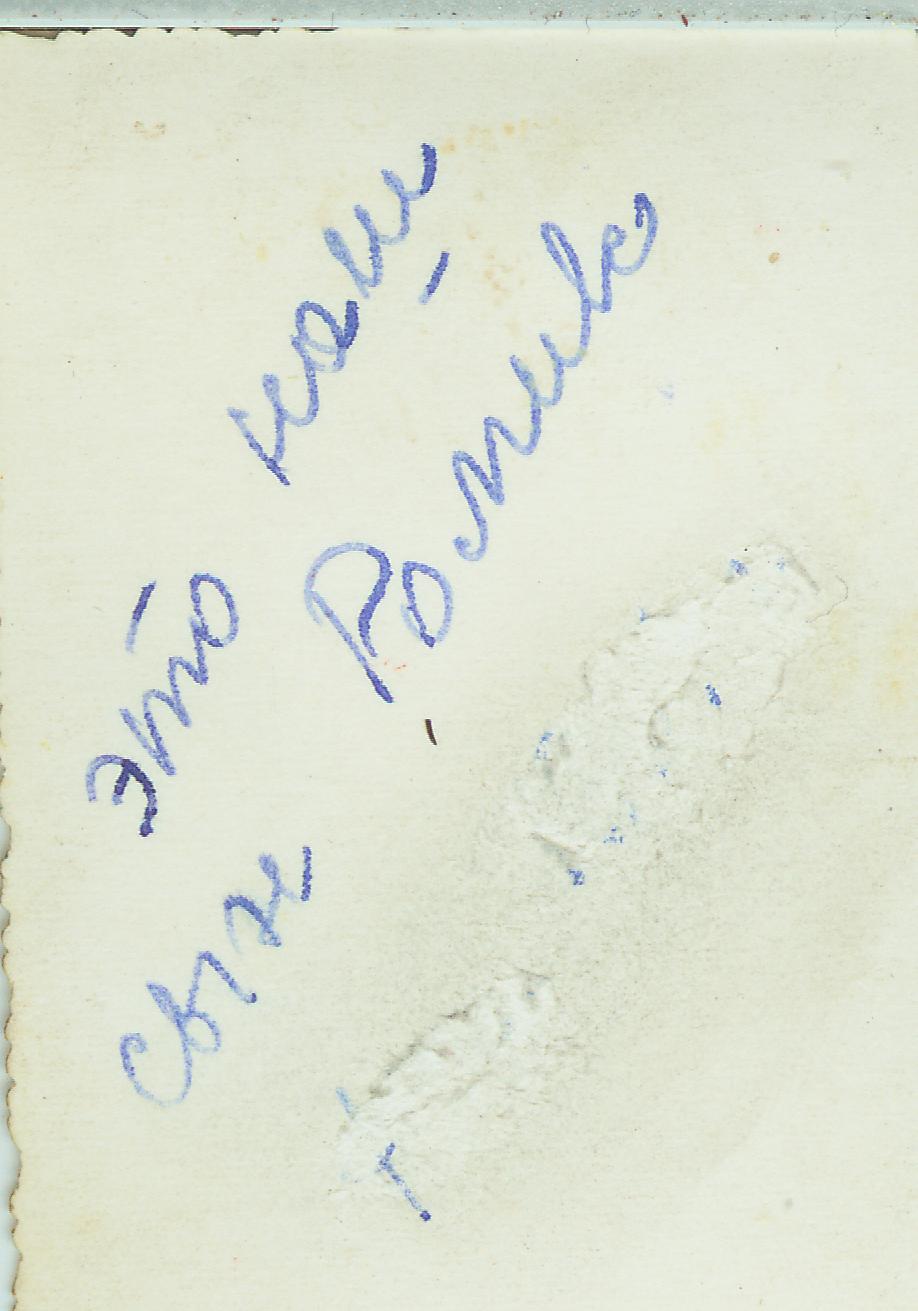 это наш
сын Ромик